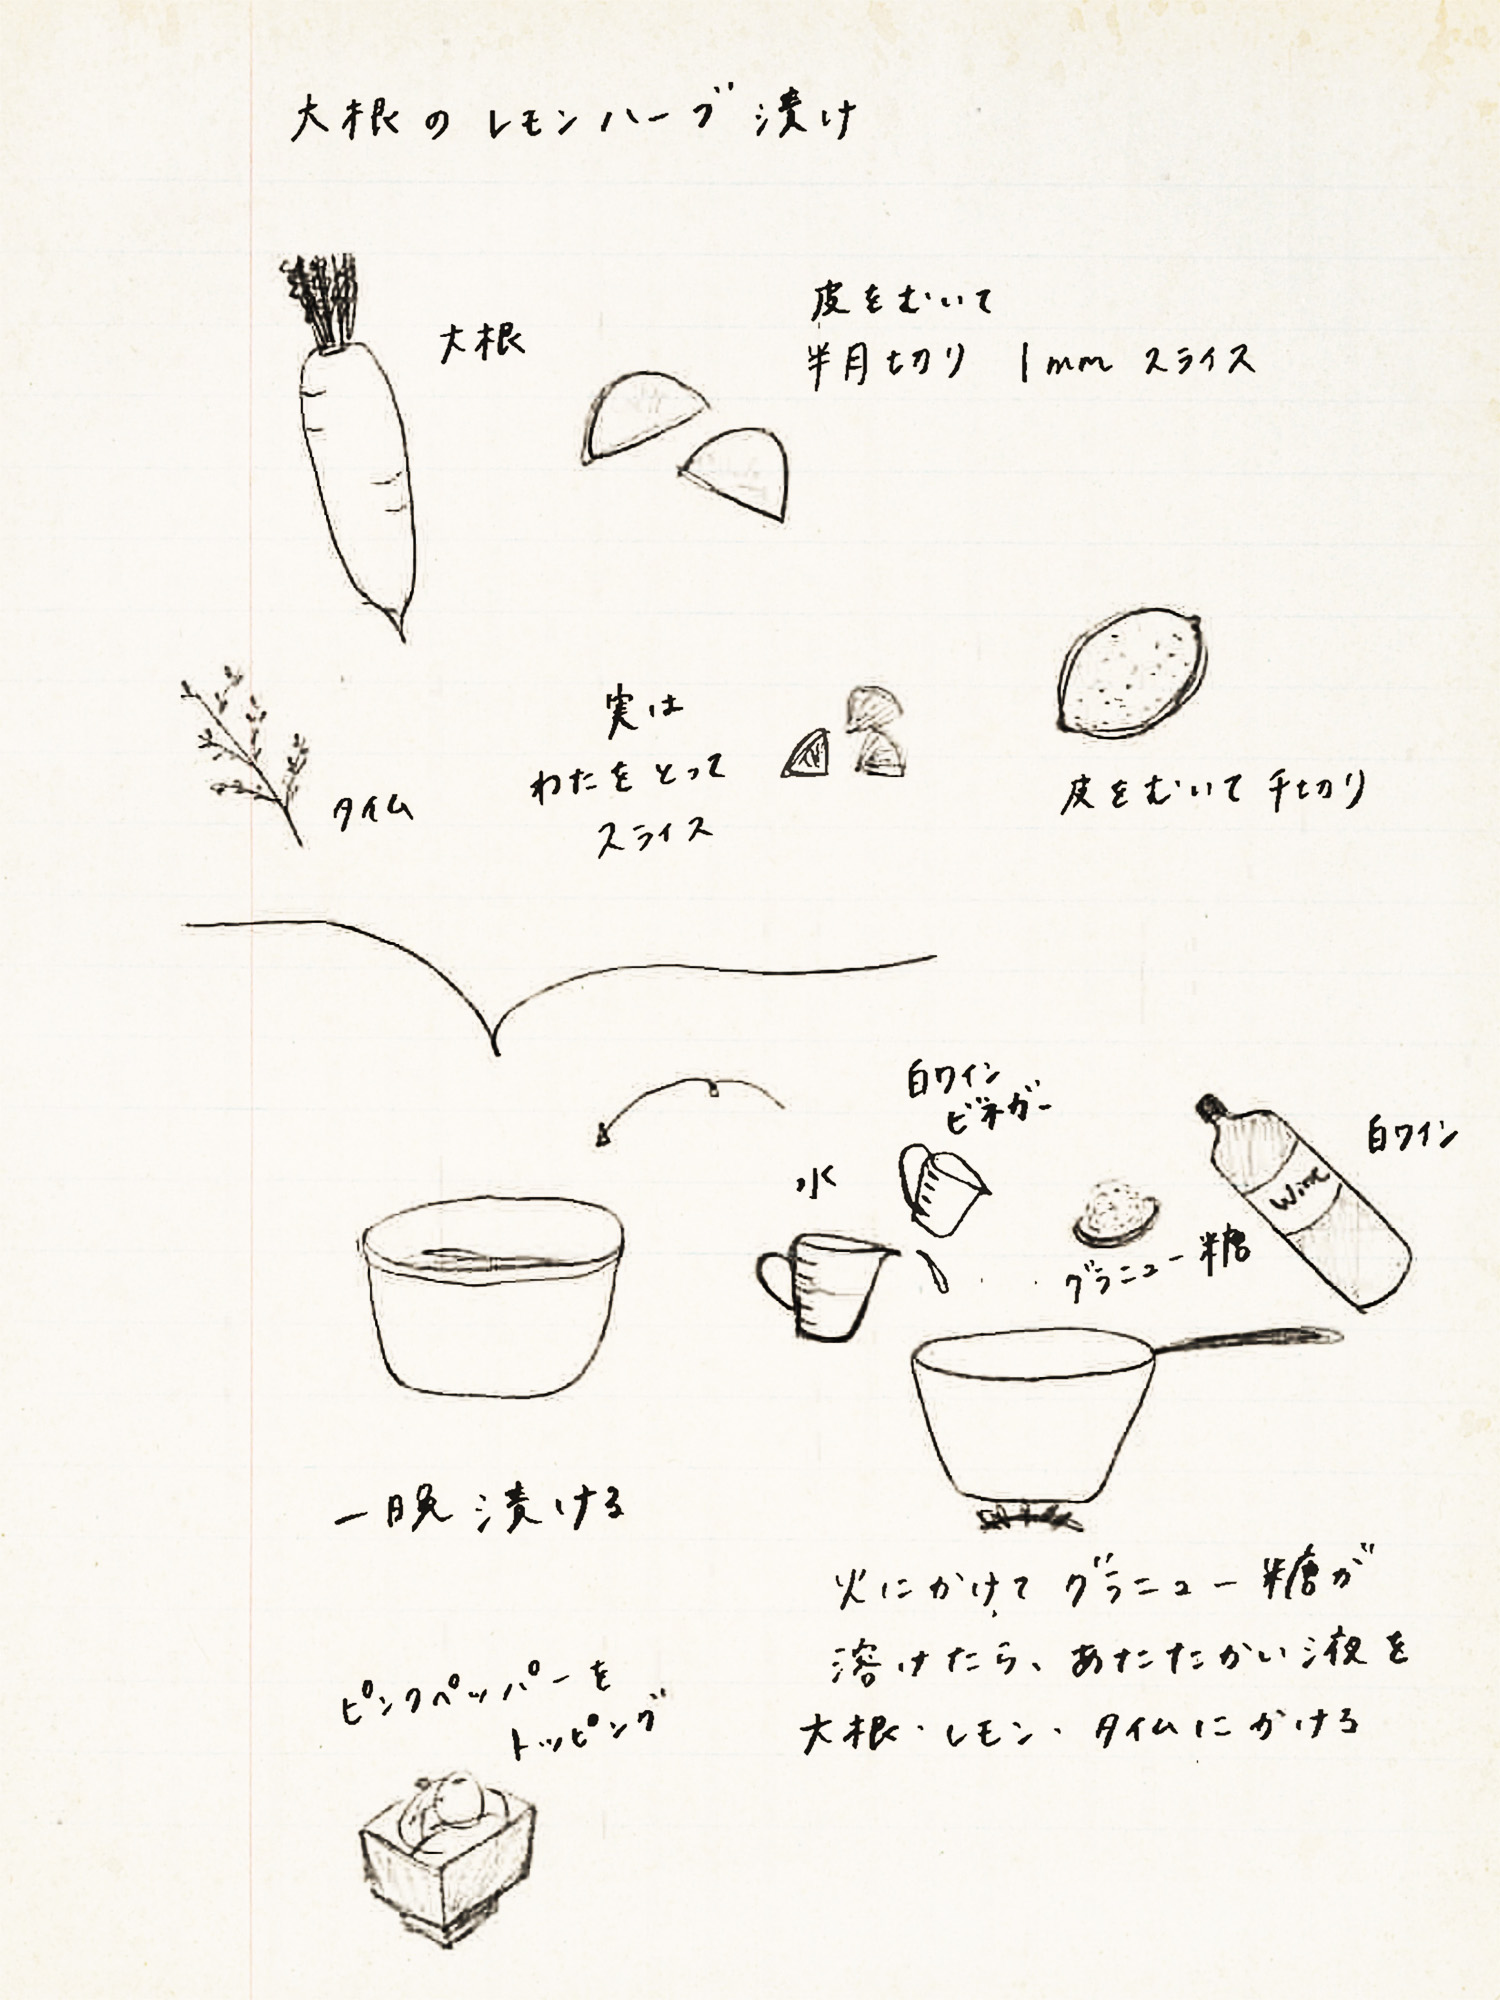 大根のレモンハーブ漬け
大根
皮をむいて
半月切り 1mm スライス
タイム
実は
わたをとって
スライス
皮をむいて千切り
白ワイン
ビネガー
水
グラニュー糖
白ワイン
Wine
一晩漬ける
火にかけてグラニュー糖が
溶けたら、あたたかい液を
大根・レモン・タイムにかける
ピンクペッパーを
トッピング